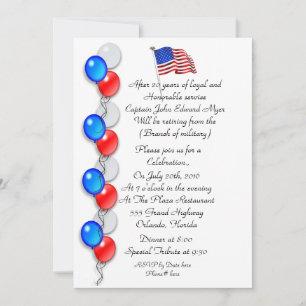 After 20 years of loyal and
Honorable service
Captain John Edward Myer
Will be retiring from the
(Branch of military)
Please join us for a
Celebration,
On July 20th, 2010
At 7 o'clock in the evening
At The Plaza Restaurant
555 Grand Highway
Orlando, Florida
Dinner at 8:00
Special Tribute at 9:30
RSVP by Date here
Phone# here